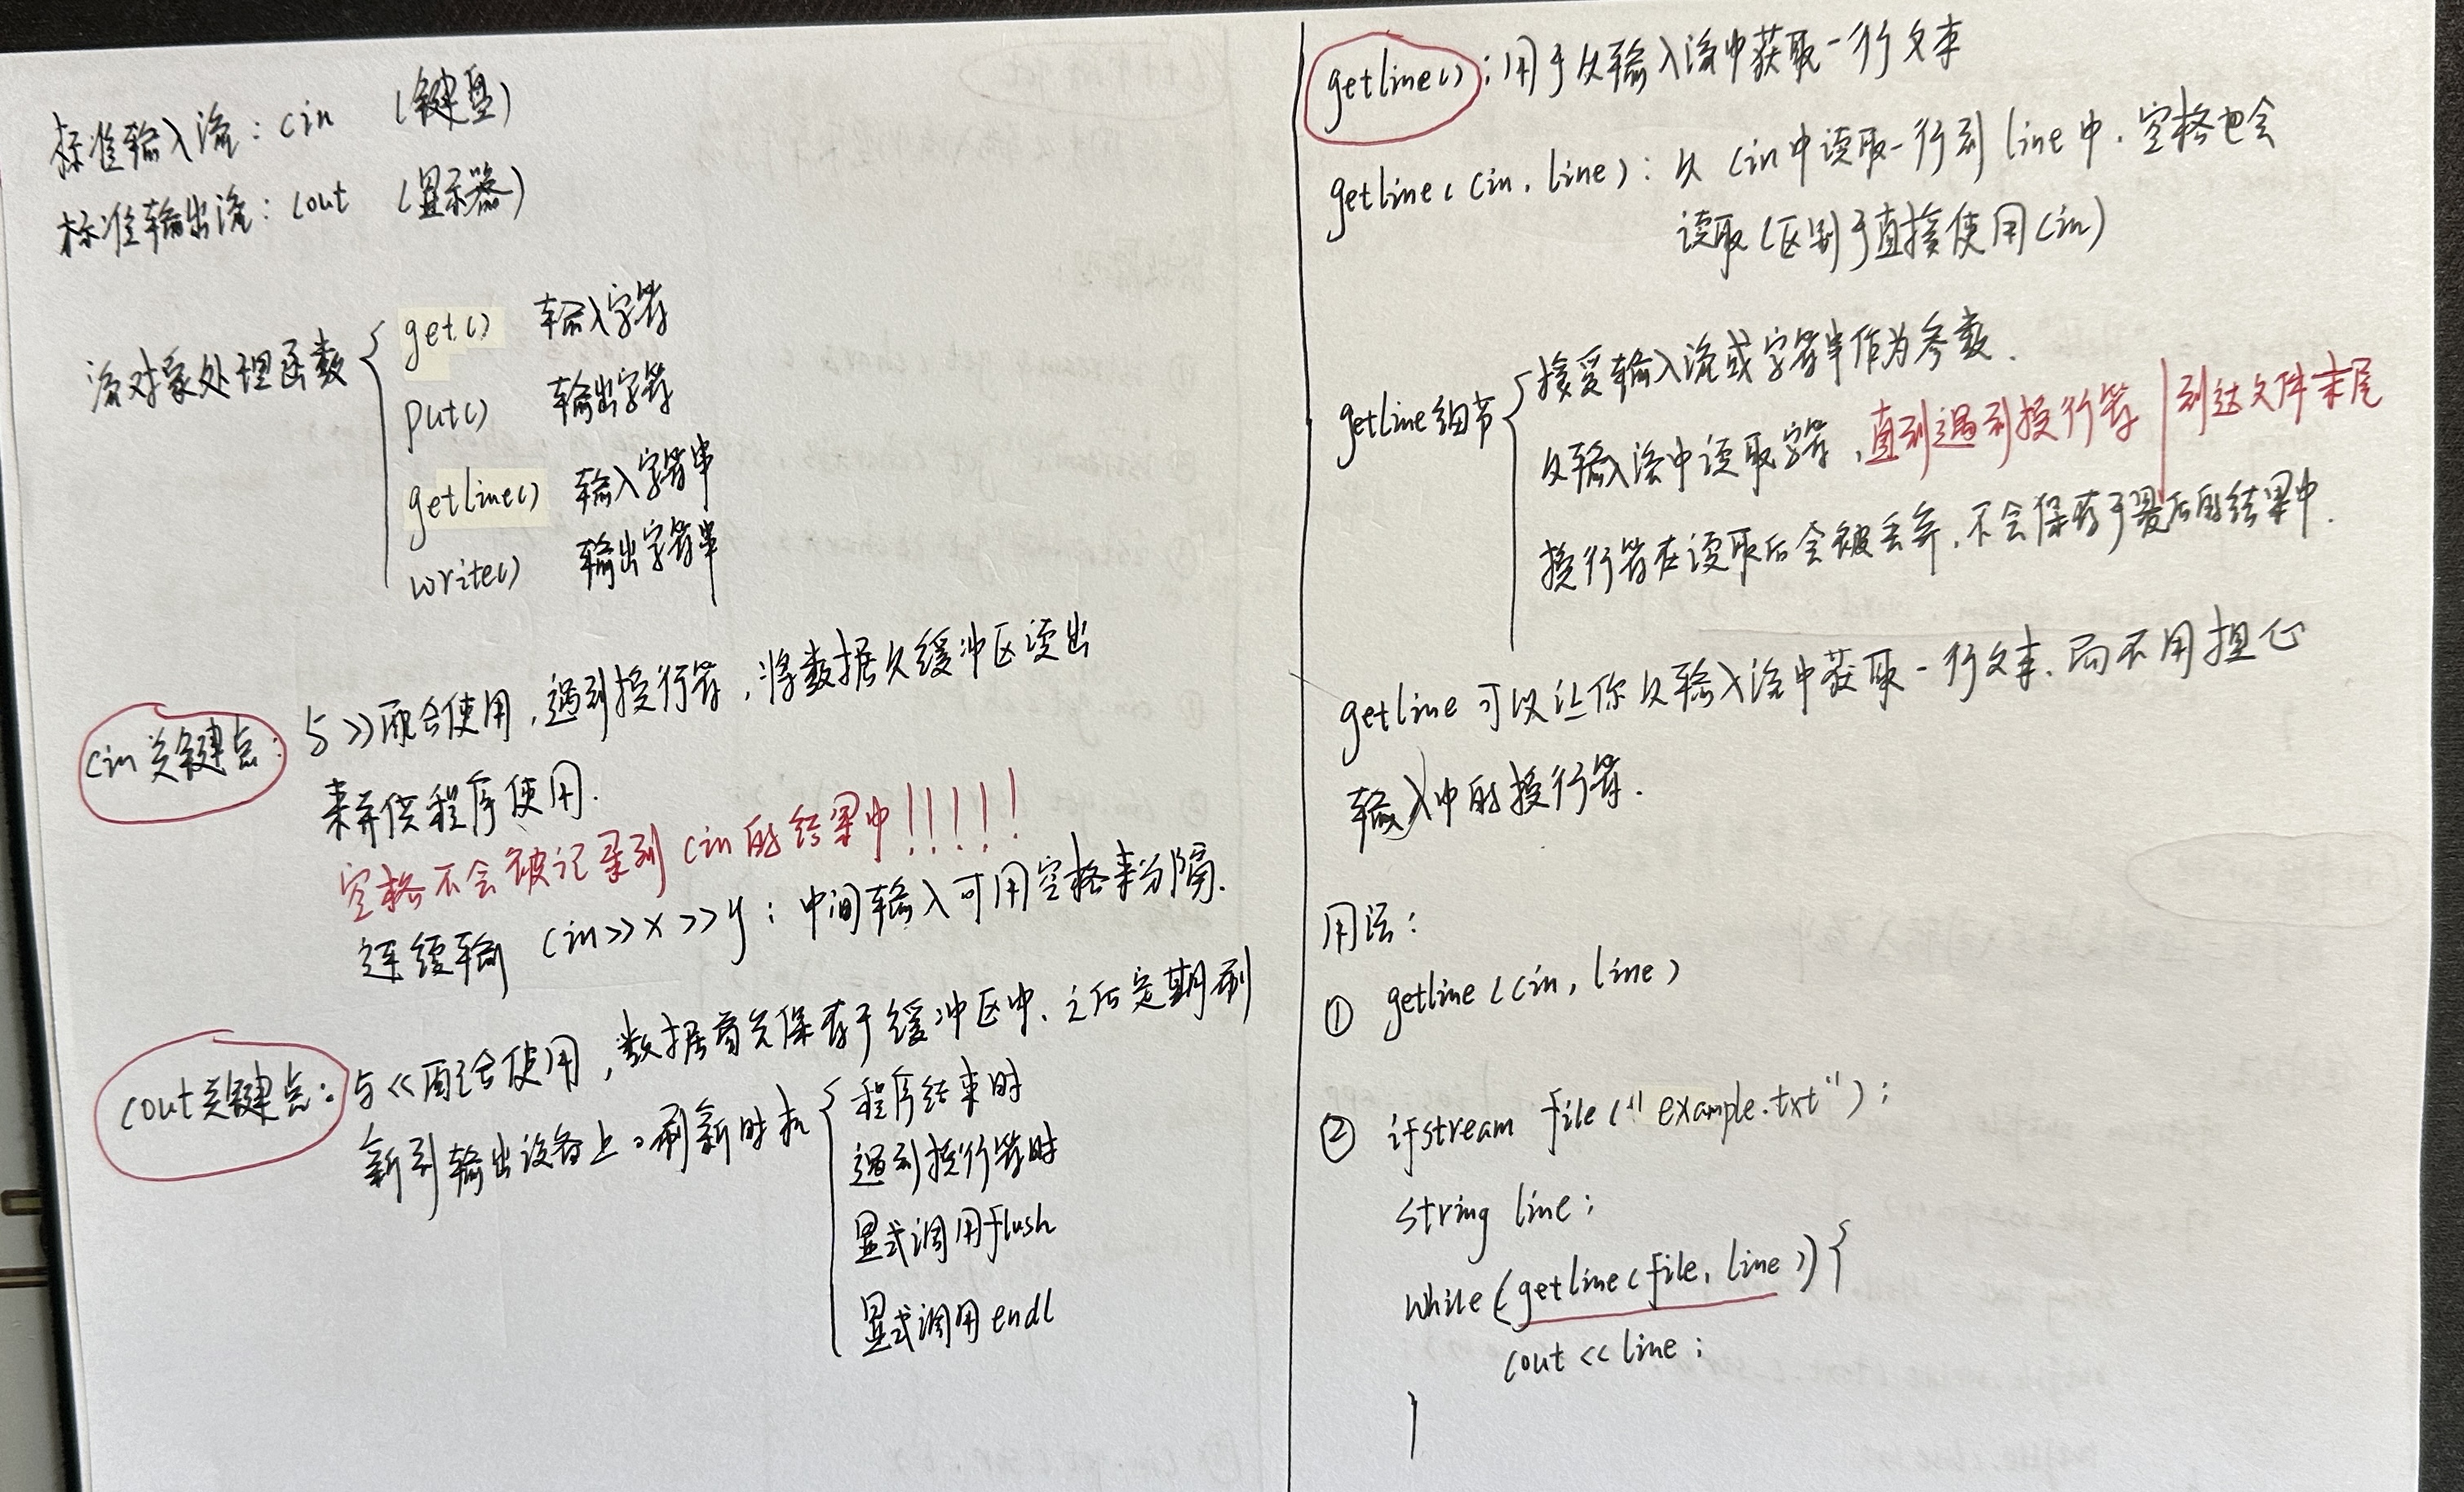 标准输入流：cin （键盘）
标准输出流：cout （显示器）
流对象处理函数
get() 输入字符
put() 输出字符
getline() 输入字符串
write() 输出字符串
cin关键点：与>>配合使用，遇到换行符，将数据从缓冲区读出
来并供程序使用.
空格不会被记录到cin的结果中!!!!!
连续输 cin>>x>>y：中间输入可用空格来分隔.
cout关键点：与<<配合使用，数据首先保存于缓冲区中、之后定期刷
新到输出设备上。刷新时机
程序结束时
遇到换行符时
显式调用flush
显式调用endl
getline()：用于从输入流中获取一行文本
getline(cin, line)：从cin中读取一行到line中，空格也会
读取(区别于直接使用cin)
getline细节
接受输入流或字符串作为参数.
从输入流中读取字符，直到遇到换行符|到达文件末尾
换行符在读取后会被丢弃，不会保存于最后的结果中.
getline可以让你从输入流中获取一行文本、而不用担心
输入中的换行符.
用法：
① getline(cin, line)
② ifstream file("example.txt");
string line;
while(getline(file, line)){
cout << line;
}